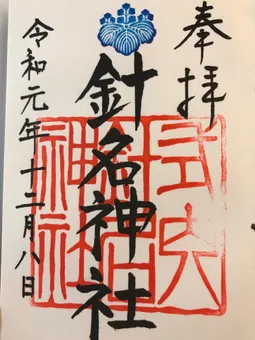 奉拝
式内
針名神社
針名神社
令和元年十二月八日